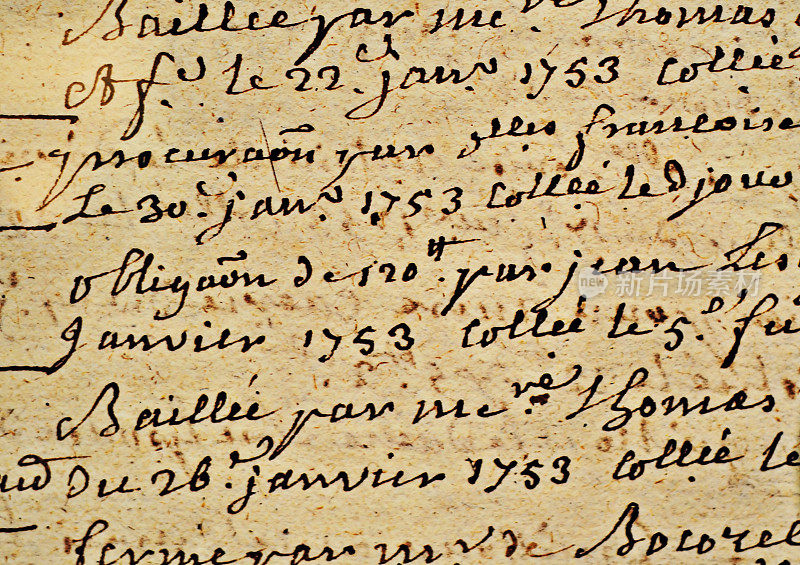 Baillée par me.re Thomas
et f.e le 22.e janv.r 1753 collée
procuraõn par dlles françoise
Le 30.e janv.r 1753 collée led jour
obligaõn de 120 ₶ par jean
Janvier 1753 collée le 5.e
Baillée par me.re Thomas
aud du 26.e janvier 1753 collée le
ferme par mr de
new 新片场 素材